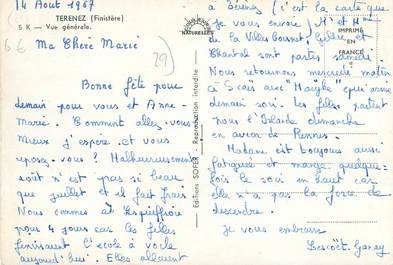 14 Août 1967
TERENEZ (Finistère)
5 K — Vue générale.
6 €
Ma Chère Marie
29
Bonne fête pour
demain pour vous et Anne-
Marie. Comment allez-vous
Mieux j'espère et vous
reposez-vous ? Malheureusement
août n'est pas si beau
que juillet et il fait frais
Nous sommes at
pour 4 jours car les filles
finissaient l'école à voile
aujourd'hui. Elles allaient
NATURELLES
Editions SOFER - Reproduction interdite
IMPRIMÉ
EN
FRANCE
à Térénez (c'est la carte que
je vous envoie) Mr et Mme
de la Villes
Chantal sont partis samedi.
Nous retournons mercredi matin
à Scaër avec
demain soir. les filles partent
pour l'Islande dimanche
en avion de Rennes.
Madame est toujours aussi
fatiguée et mange quelque-
fois le soir en haut car
elle n'a pas la force de
descendre.
Je vous embrasse